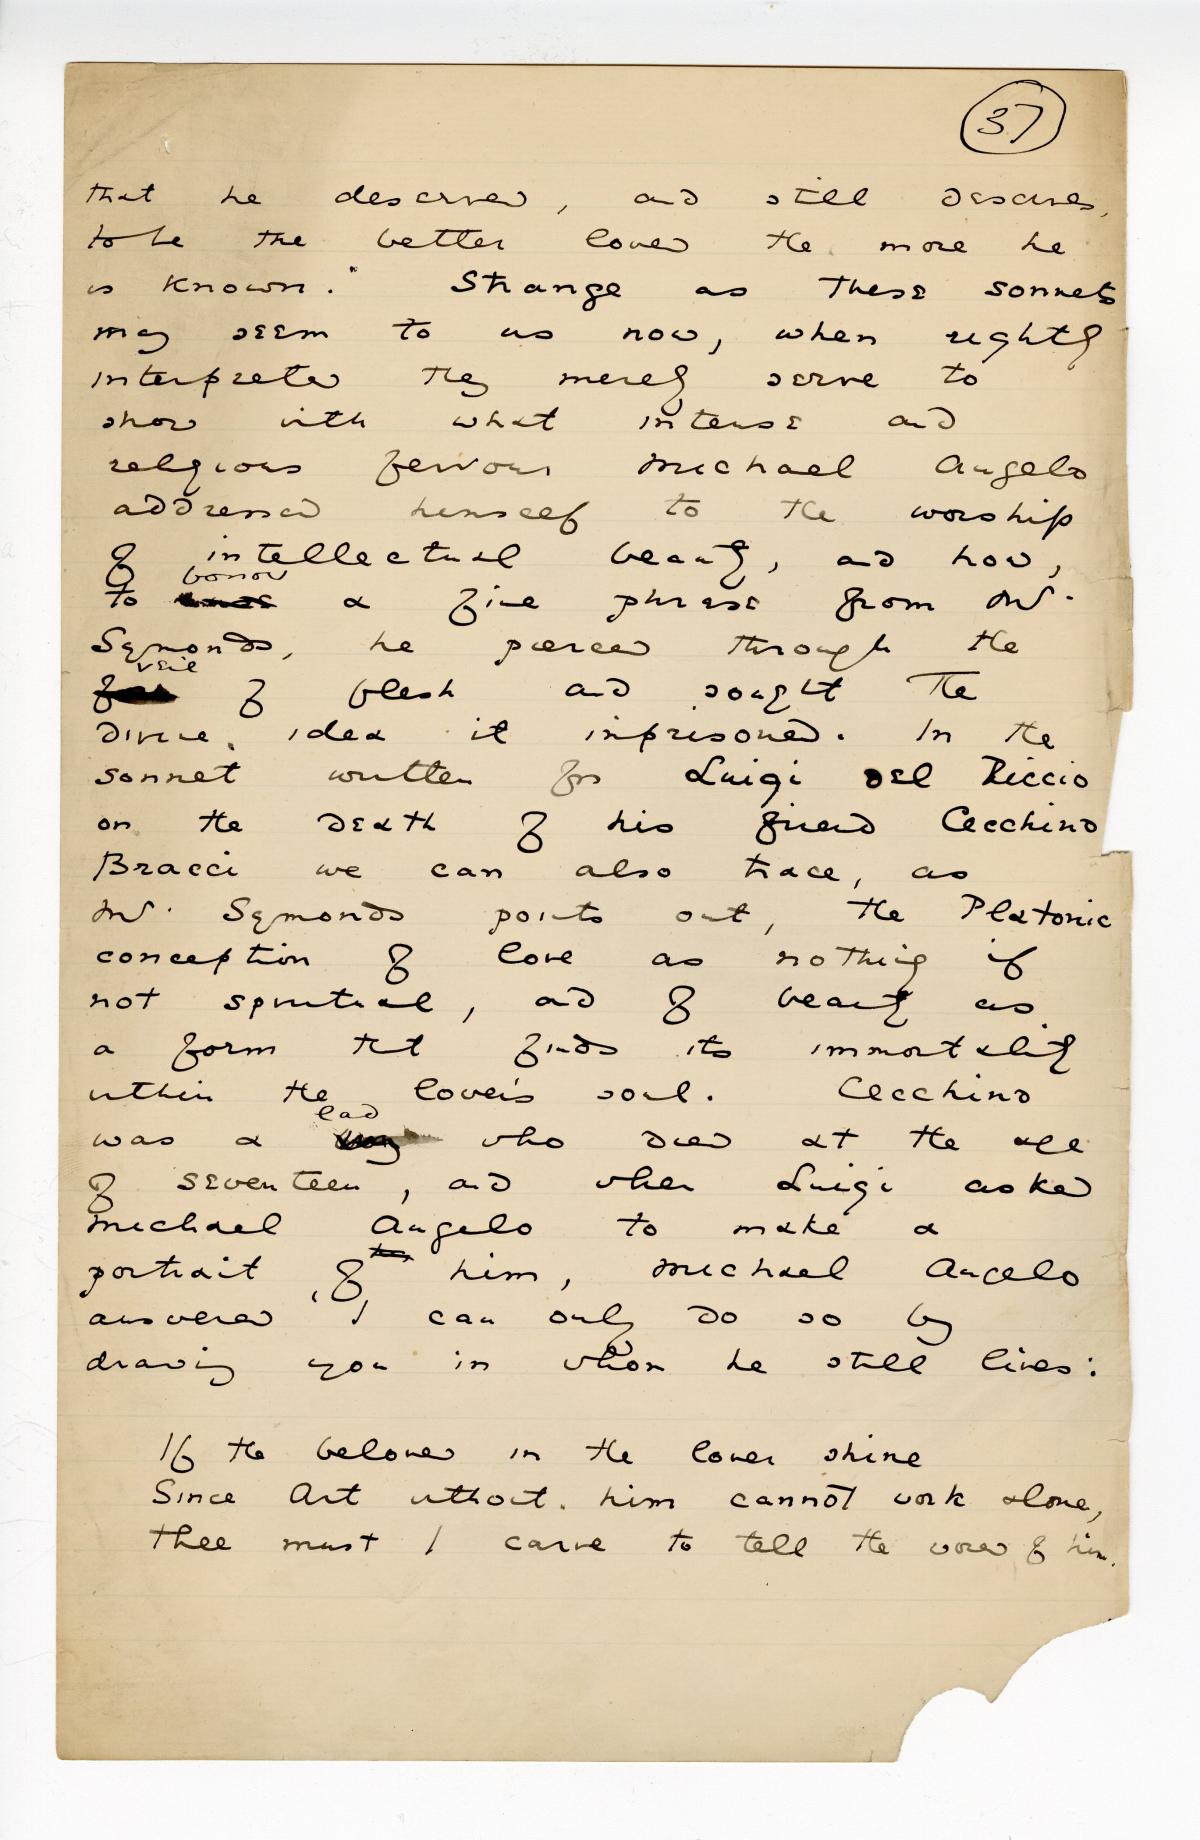 37
that he deserved, and still deserves,
to be the better loved the more he
is known." Strange as these sonnets
may seem to us now, when rightly
interpreted they merely serve to
show with what intense and
religious fervour Michael Angelo
addressed himself to the worship
of intellectual beauty, and how,
borrow
to a fine phrase from Mr.
Symonds, he pierced through the
veil
of flesh and sought the
divine idea it imprisoned. In the
sonnet written for Luigi del Riccio
on the death of his friend Cecchino
Bracci we can also trace, as
Mr. Symonds points out, the Platonic
conception of love as nothing if
not spiritual, and of beauty as
a form that finds its immortality
within the lover's soul. Cecchino
lad
was a who died at the age
of seventeen, and when Luigi asked
Michael Angelo to make a
portrait of him, Michael Angelo
answered 'I can only do so by
drawing you in whom he still lives:
If the beloved in the lover shine
Since Art without him cannot work alone,
Thee must I carve to tell the world of him.